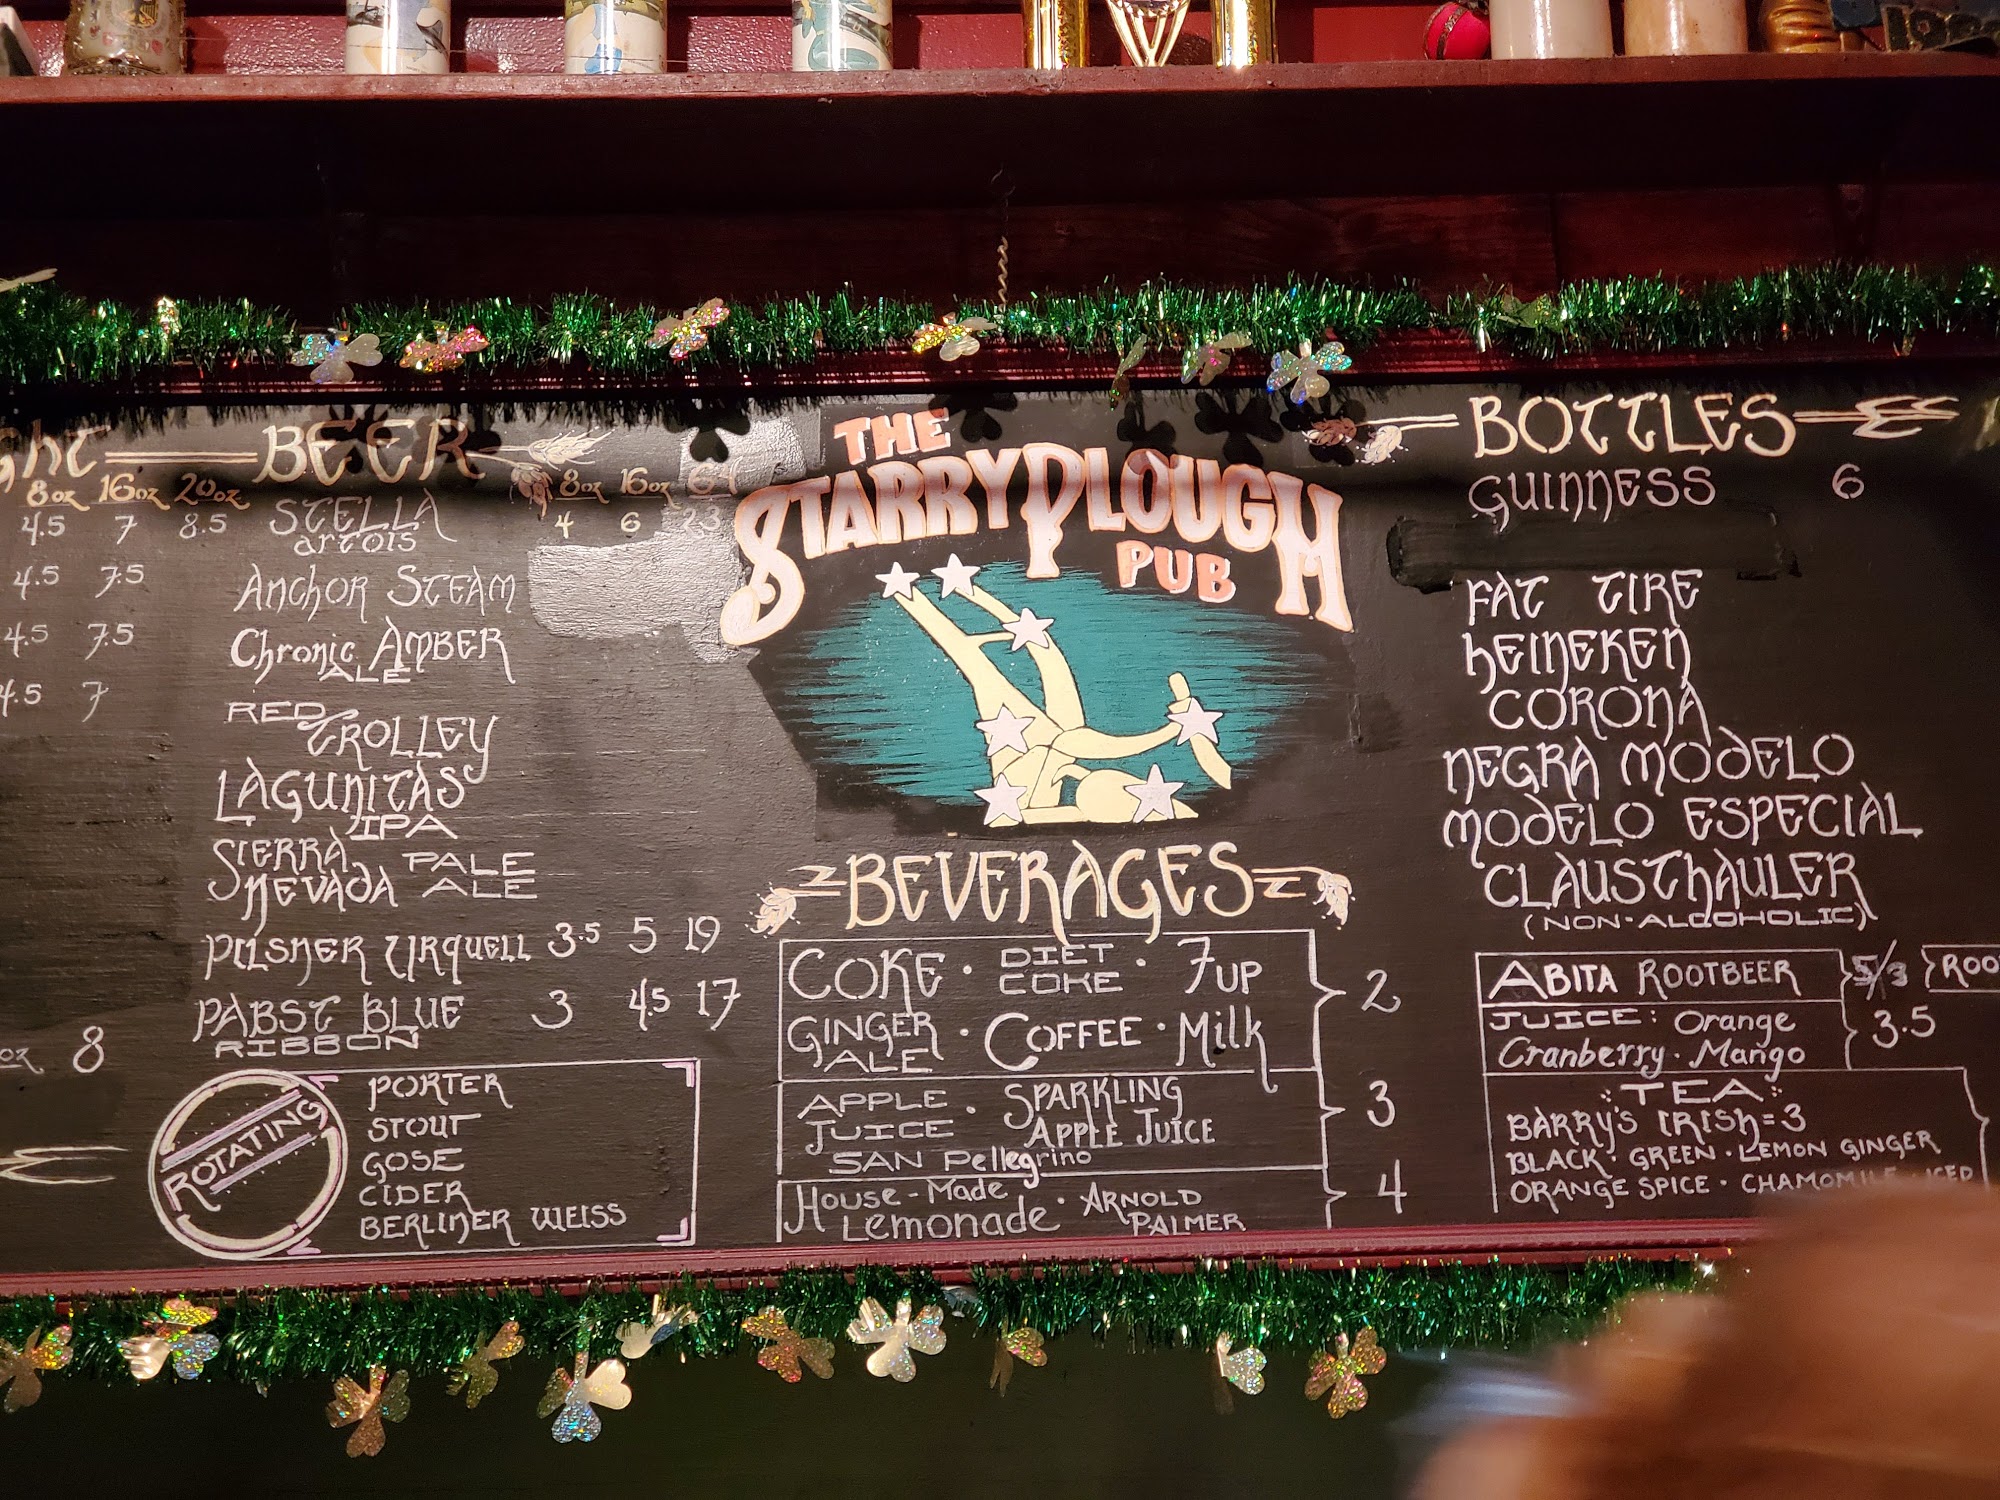 8oz 16oz 20oz
4.5 7 8.5
4.5 7.5
4.5 7.5
4.5 7
8
BEER
8oz 16oz 64
STELLA 4 6 23
artois
ANCHOR STEAM
Chronic AMBER
ALE
RED
TROLLEY
LAGUNITAS
IPA
SIERRA PALE
NEVADA ALE
PILSNER URQUELL 3.5 5 19
PABST BLUE 3 4.5 17
RIBBON
ROTATING
PORTER
STOUT
GOSE
CIDER
BERLINER WEISS
THE
STARRY PLOUGH
PUB
BEVERAGES
COKE · DIET COKE · 7UP
GINGER ALE · COFFEE · Milk
2
APPLE JUICE · SPARKLING APPLE JUICE
SAN Pellegrino
3
HOUSE-MADE LEMONADE · ARNOLD PALMER
4
BOTTLES
GUINNESS 6
FAT TIRE
HEINEKEN
CORONA
NEGRA MODELO
MODELO ESPECIAL
CLAUSTHAULER
(NON-ALCOHOLIC)
ABITA ROOTBEER
JUICE: Orange
Cranberry · Mango
3.5
TEA
BARRY'S IRISH=3
BLACK · GREEN · LEMON GINGER
ORANGE SPICE · CHAMOMILE · ICED